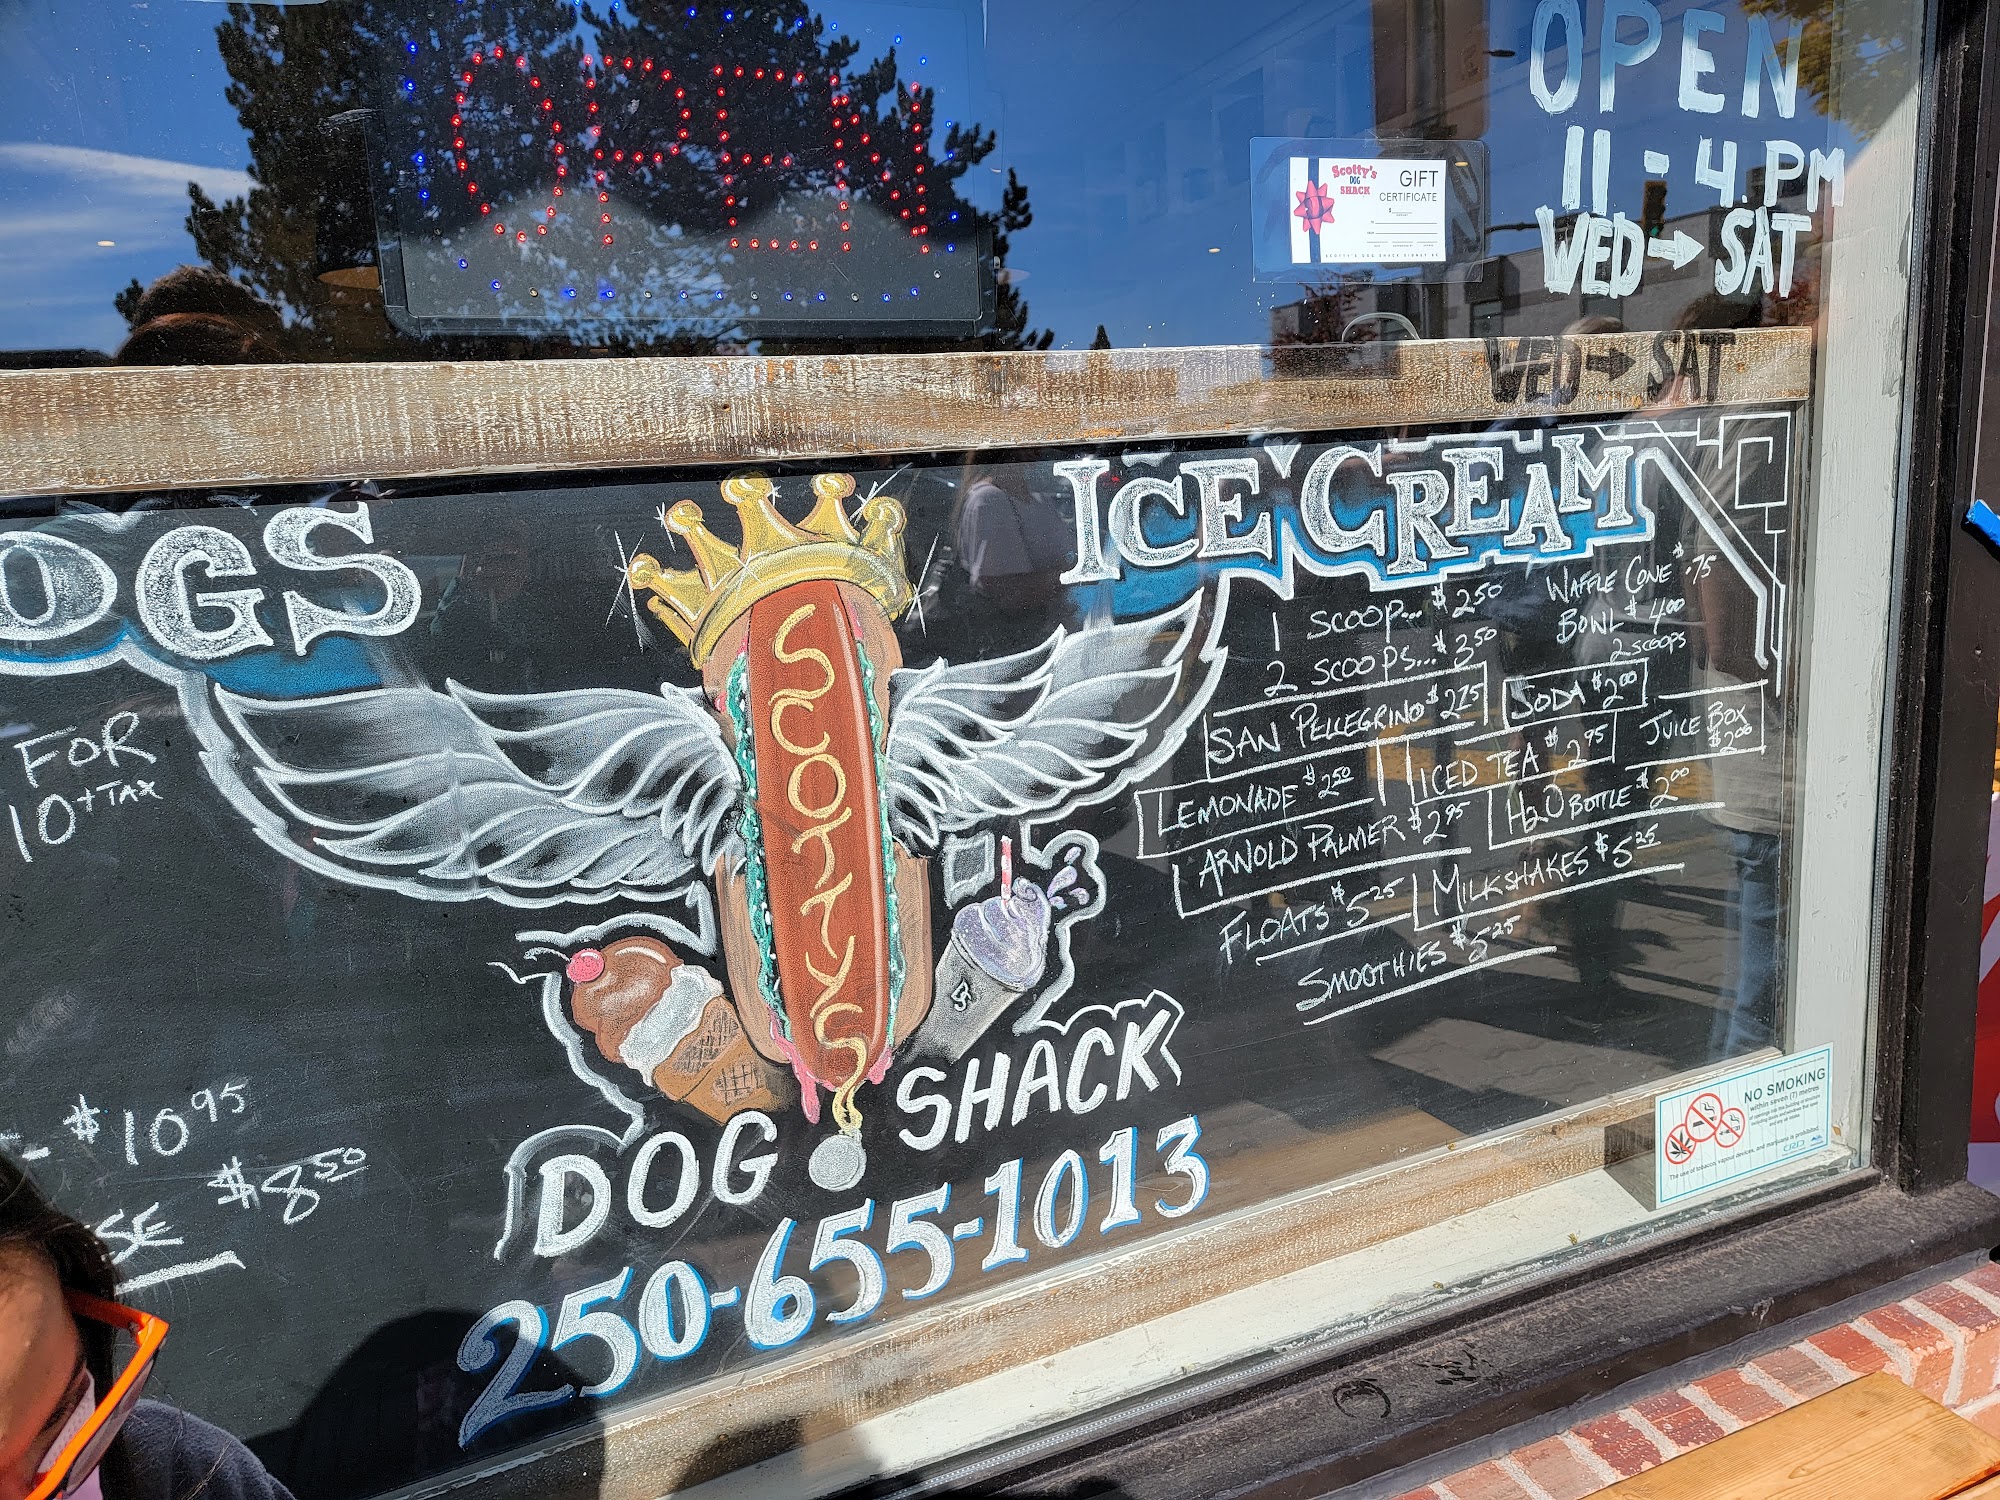 OPEN
OPEN
11-4PM
WED→SAT
Scotty's
DOG
SHACK
GIFT
CERTIFICATE
SCOTTY'S DOG SHACK SIDNEY BC
WED→SAT
OGS
FOR
10+TAX
- $10.95
SE $8.50
SCOTTYS
DOG SHACK
250-655-1013
ICE CREAM
1 SCOOP... $2.50
2 SCOOPS... $3.50
WAFFLE CONE $.75
BOWL $4.00
2 SCOOPS
SAN PELLEGRINO $2.75
SODA $2.00
LEMONADE $2.50
ICED TEA $2.95
JUICE BOX
$2.00
ARNOLD PALMER $2.95
H2O BOTTLE $2.00
FLOATS $5.25
MILKSHAKES $5.25
SMOOTHIES $5.25
NO SMOKING
within seven (7) metres
The use of tobacco, vapour devices, and marijuana is prohibited.
CRD